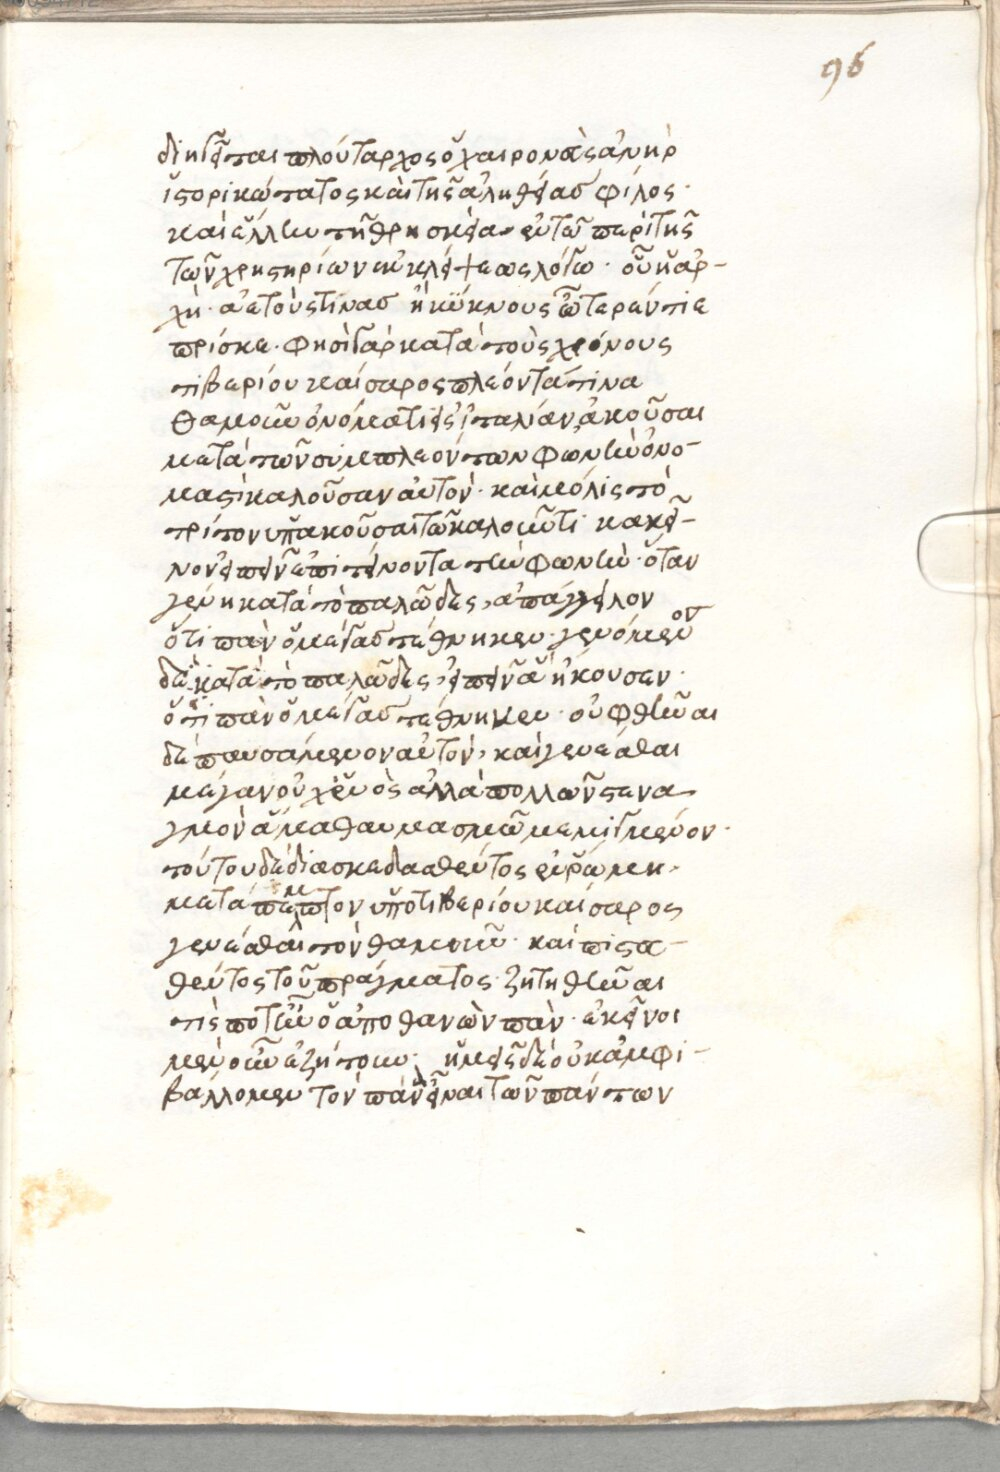 96
διηγεῖται πλούταρχος ὁ χαιρονεὺς ἀνὴρ
ἱστορικώτατος καὶ τῆς ἀληθείας φίλος·
καὶ ἕλλην τῇ θρησκεία· ἐν τῷ περὶ τῆς
τῶν χρηστηρίων ἐκλείψεως λόγω· οὗ ἡ ἀρ-
χὴ· ἀετούς τινας ἢ κύκνους ὦ τερέντιε
πρίσκε· φησὶ γὰρ κατὰ τοὺς χρόνους
τιβερίου καίσαρος πλέοντά τινα
θαμοῦν ὀνόματι εἰς ἰταλίαν, ἀκοῦσαι
μετὰ τῶν συμπλεόντων φωνὴν ὀνο-
μαστὶ καλοῦσαν αὐτόν· καὶ μόλις τὸ
τρίτον ὑπακοῦσαι τῷ καλοῦντι κἀκεῖ-
νον εἰπεῖν ἐπιτείνοντα τὴν φωνὴν· ὅταν
γένη κατὰ τὸ παλῶδες, ἀπάγγειλον
ὅτι πὰν ὁ μέγας τέθνηκεν· γενόμενον
δὲ κατὰ τὸ παλῶδες, εἰπεῖν ἃ ἤκουσεν·
ὅτι πὰν ὁ μέγας τέθνηκεν· οὐ φθῆναι
δὲ παυσάμενον αὐτόν, καὶ γενέσθαι
μέγαν οὐχ ἑνὸς ἀλλὰ πολλῶν στενα
γμὸν ἅμα θαυμασμῷ μεμιγμένον·
τούτου δὲ διασκεδασθέντος ἐν ῥώμη·
μετάπεμπτον ὑπὸ τιβερίου καίσαρος
γενέσθαι τὸν θαμοῦν· καὶ πιστω-
θέντος τοῦ πράγματος ζητηθῆναι
τίς ποτ' ἦν ὁ ἀποθανὼν πὰν· ἐκεῖνοι
μὲν οὖν ἐζήτουν· ἡμεῖς δὲ οὐκ ἀμφι-
βάλλομεν τὸν πᾶν εἶναι τῶν πάντων